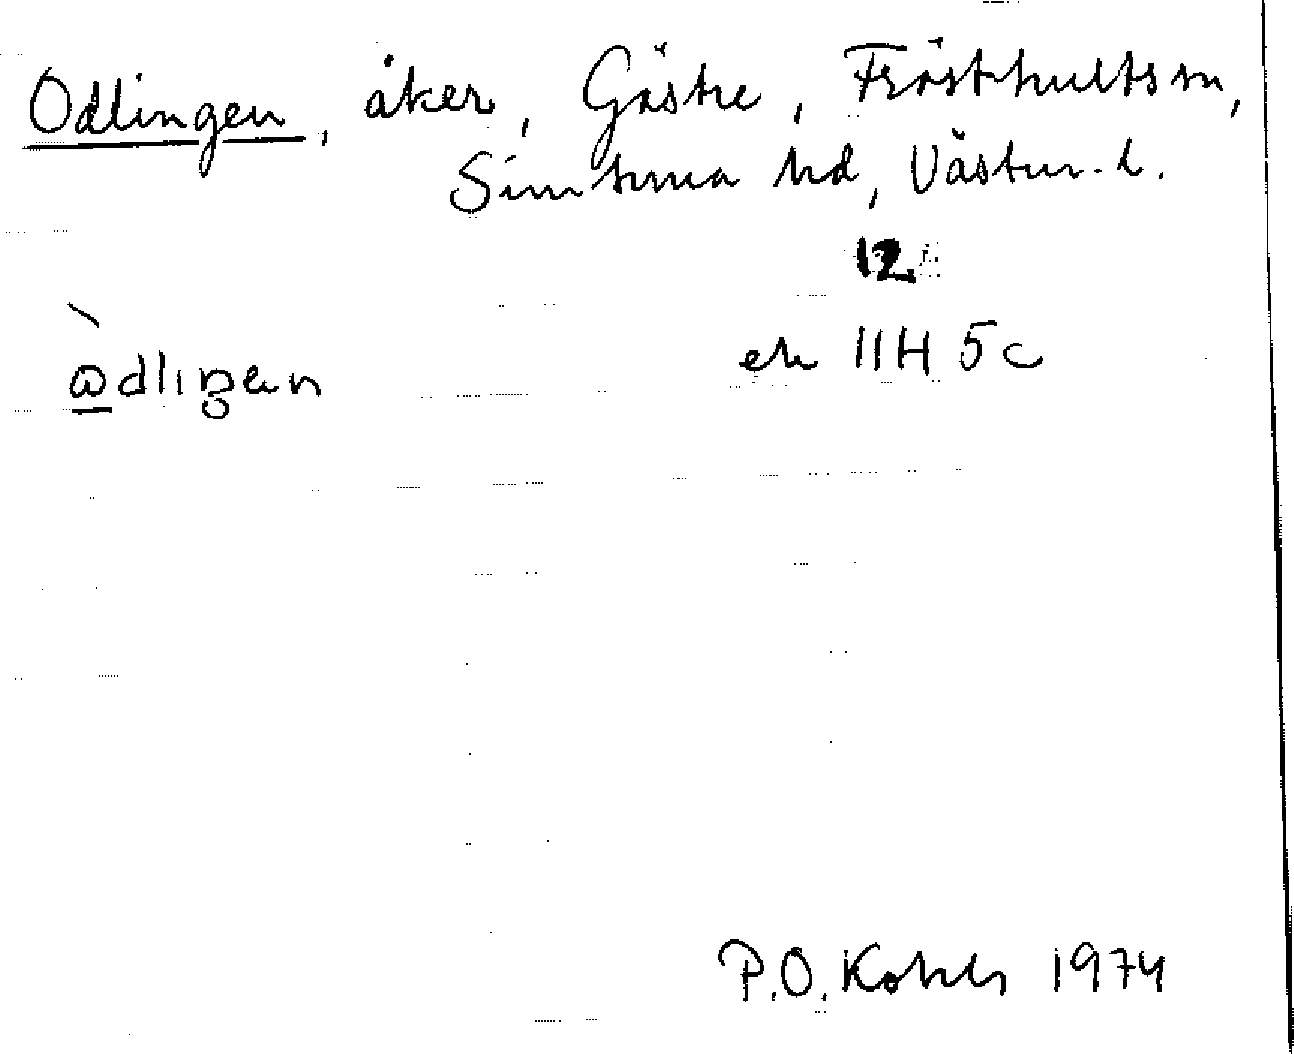 Odlingen, åker, Gästre, Frösthults sn,
Simtuna hd, Västm. l.
12
ek 11H 5c
P.O. Kohls 1974